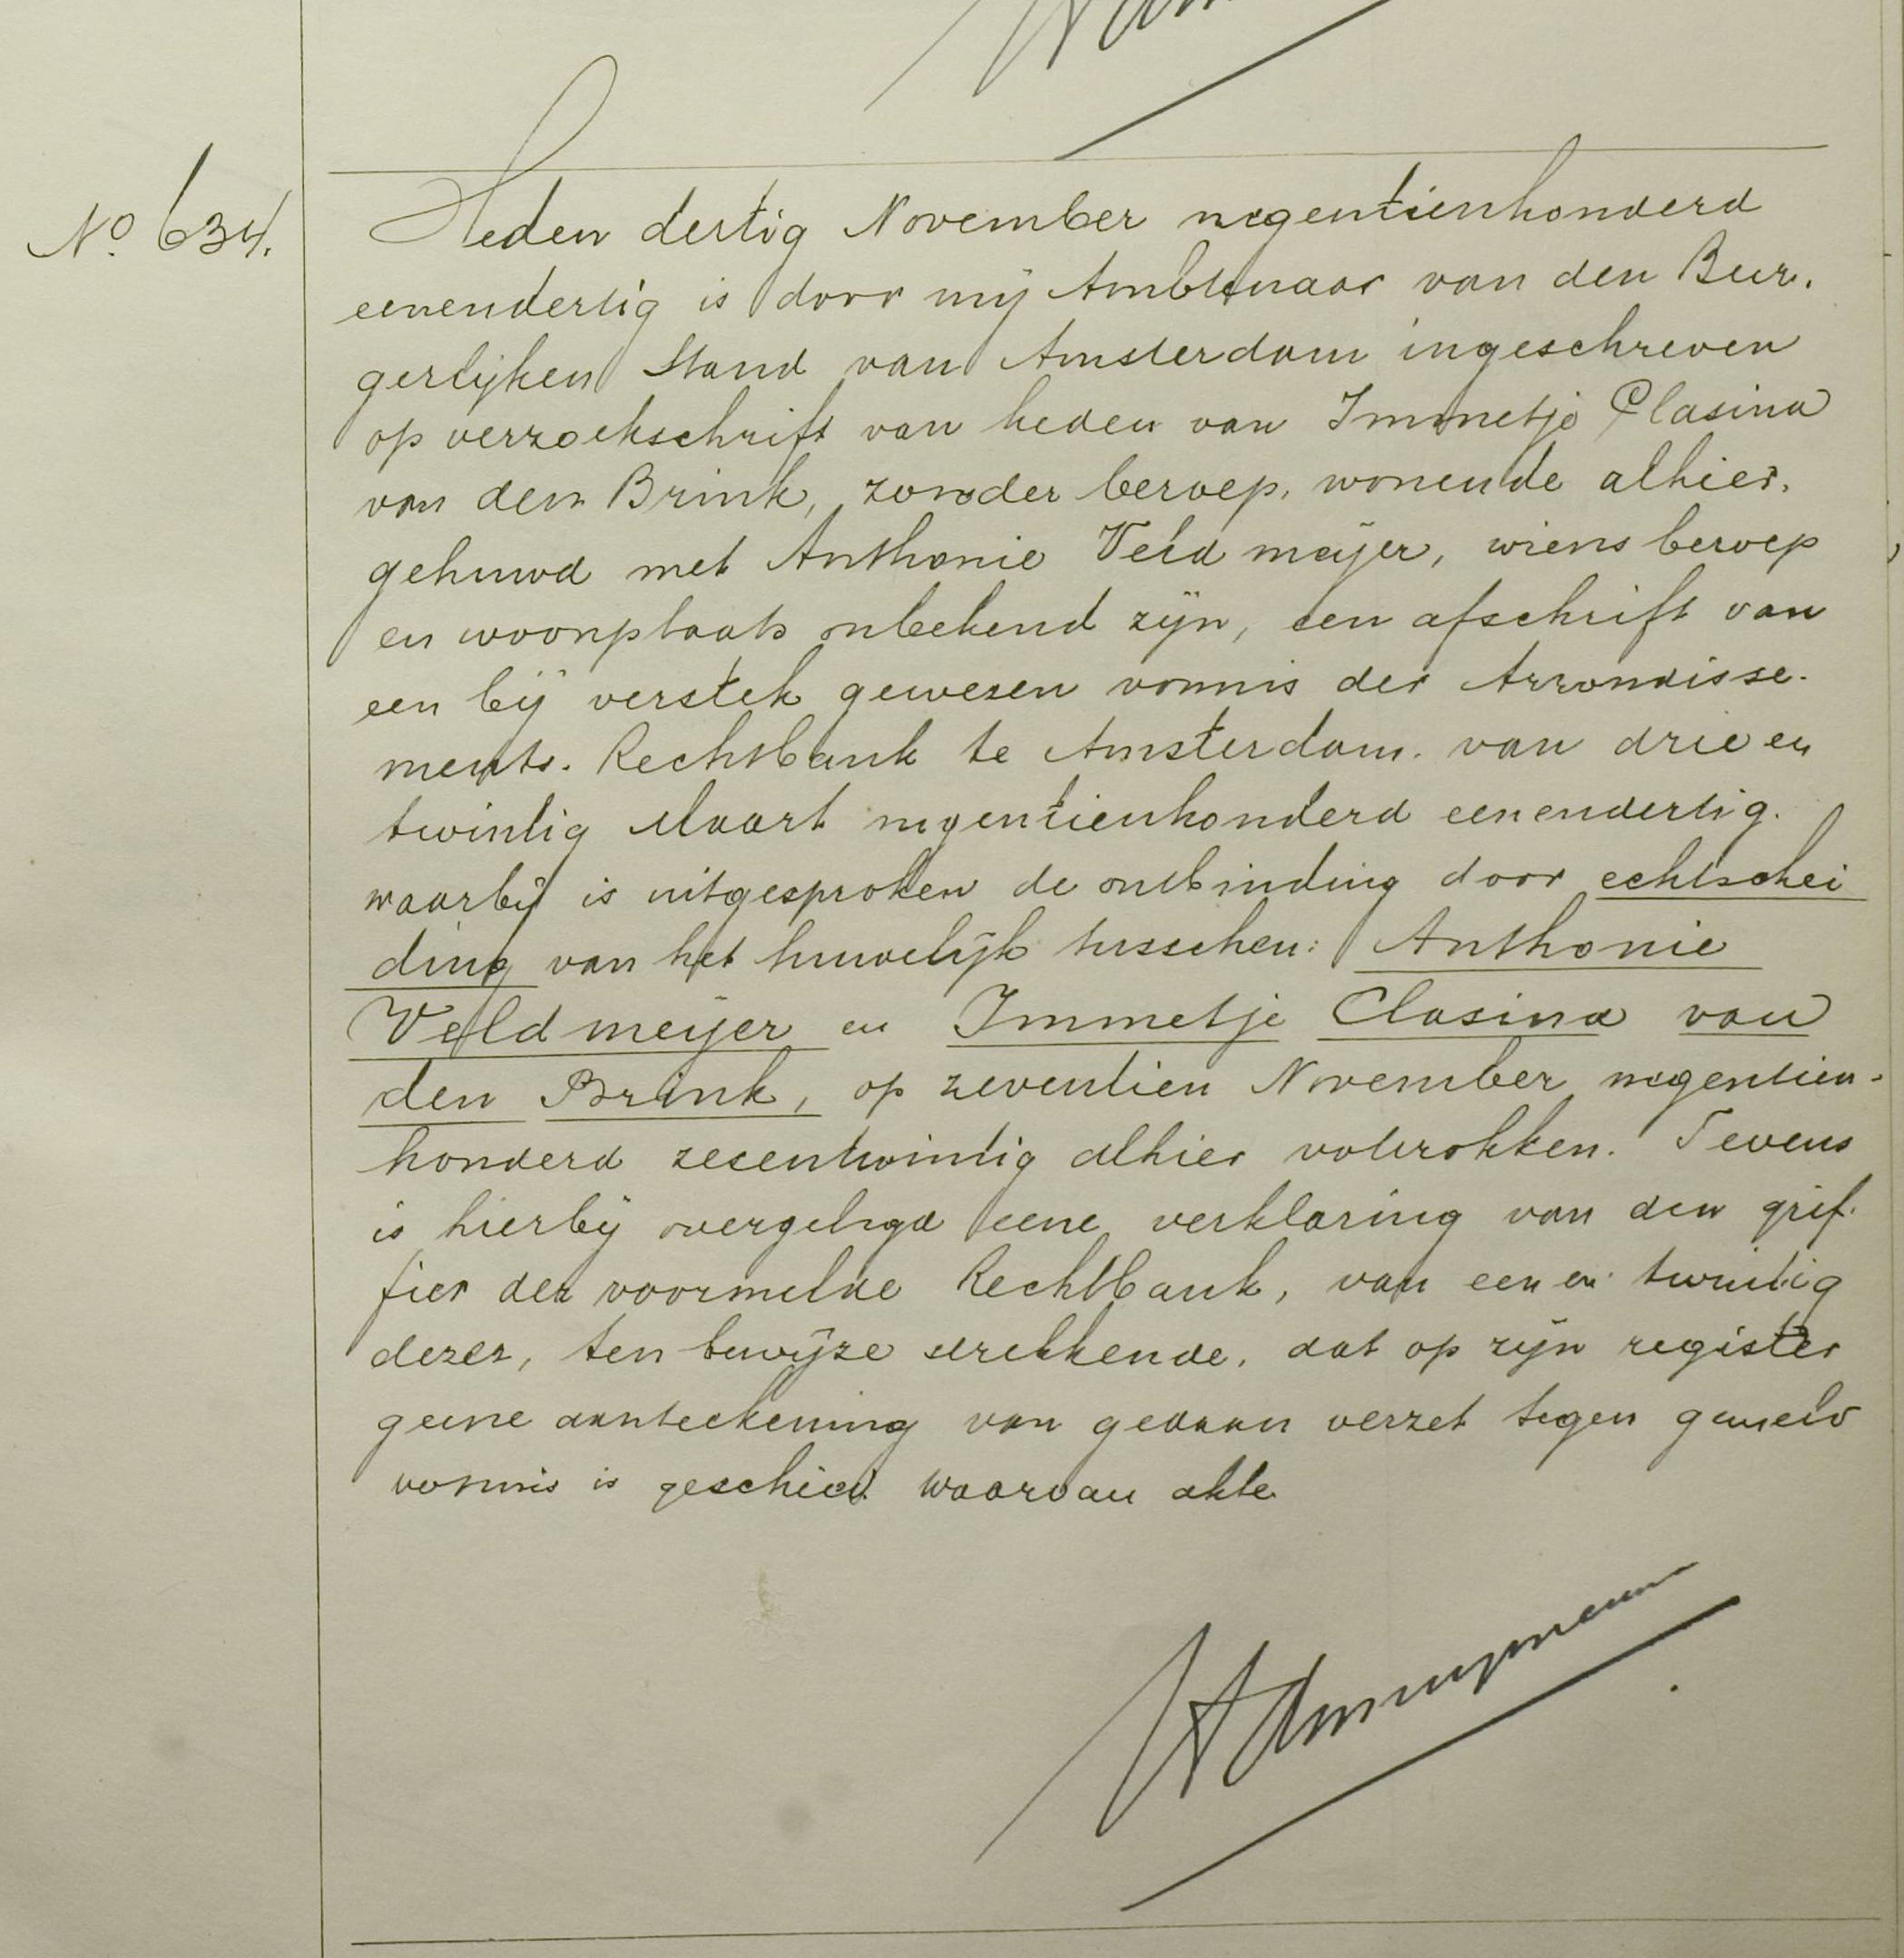 No. 634.
Heden dertig November negentienhonderd
eenendertig is door mij Ambtenaar van den Bur.
gerlijken Stand van Amsterdam ingeschreven
op verzoekschrift van heden van Immetje Clasina
van den Brink, zonder beroep, wonende alhier,
gehuwd met Anthonie Veldmeijer, wiens beroep
en woonplaats onbekend zijn, een afschrift van
een bij verstek gewezen vonnis der Arrondisse-
ments-Rechtbank te Amsterdam. van drie en
twintig Maart negentienhonderd eenendertig.
waarbij is uitgesproken de ontbinding door echtschei
ding van het huwelijk tusschen: Anthonie
Veldmeijer en Immetje Clasina van
den Brink, op zeventien November negentien-
honderd zesentwintig alhier voltrokken. Tevens
is hierbij overgelegd eene verklaring van den grif-
fier der voormelde Rechtbank, van een en twintig
dezer, ten bewijze strekkende, dat op zijn register
geene aanteekening van gedaan verzet tegen gemeld
vonnis is geschied. waarvan akte